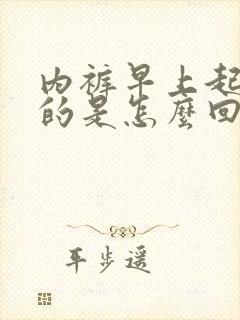 内裤早上起
的是怎麼回
平步遥